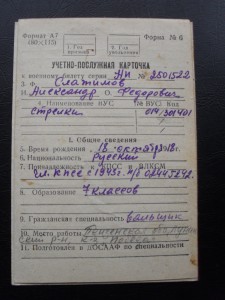 Формат А7
Форма № 6
УЧЕТНО-ПОСЛУЖНАЯ КАРТОЧКА
к военному билету серии НИ № 2501522
Ф. Слатимов
И. Александр О. Федорович
Наименование ВУС № ВУС Код
стрелки
1. Общие сведения
5. Время рождения 18 октября 1918г.
6. Национальность Русский
7. Принадлежность к КПСС и ВЛКСМ
чл. КПСС с 1943г.
8. Образование 7 классов
9. Гражданская специальность вальщик
10. Место работы Пензенская
11. Подготовлен в ДОСААФ по специальности